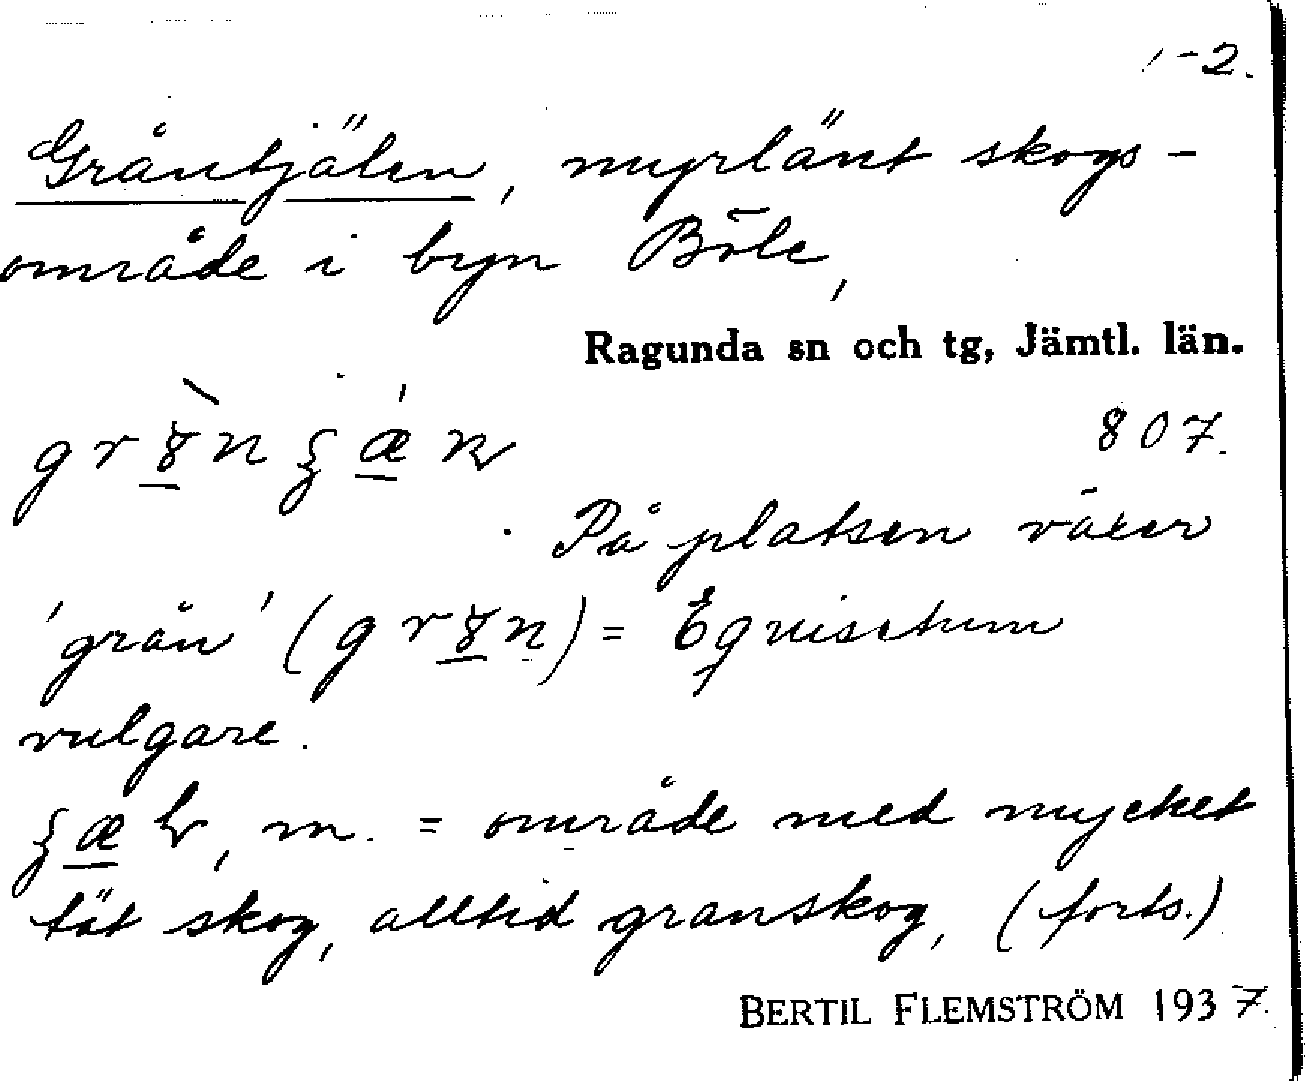 1-2.
Gråntjälen, myrlänt skogs-
område i byn Böle,
Ragunda sn och tg, Jämtl. län.
807.
På platsen växer
'grån' ( ) = Equisetum
vulgare.
, m. = område med mycket
tät skog, alltid granskog, (forts.)
BERTIL FLEMSTRÖM 1937.